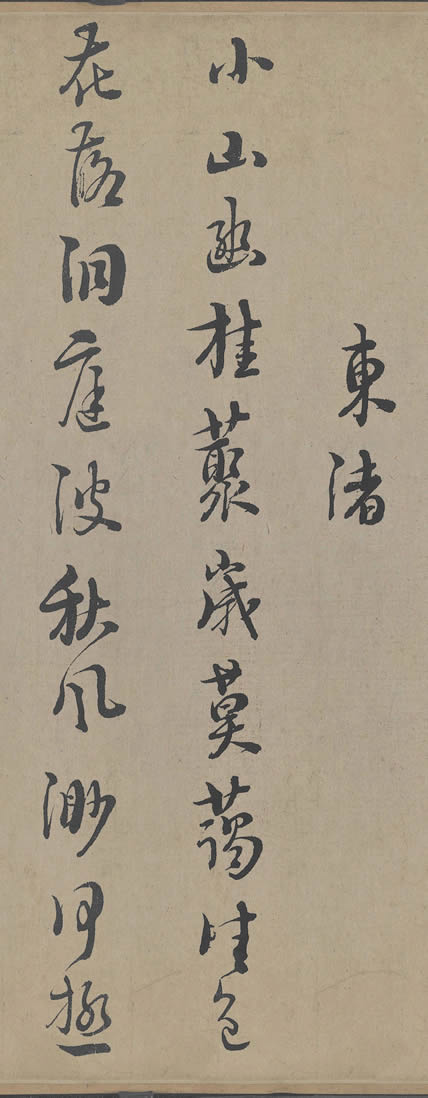 東渚
小山幽桂藂歲莫藹佳色
花落洞庭波秋風渺何極